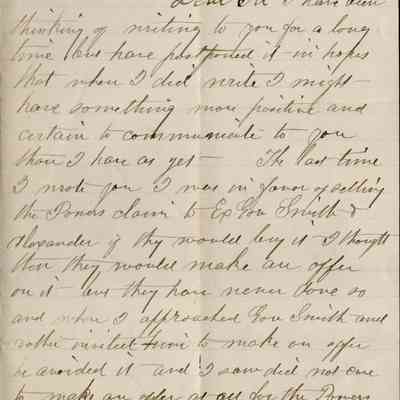 Dear Sir I have been
thinking of writing to you for a long
time but have postponed it in hopes
that when I did write I might
have something more positive and
certain to communicate to you
than I have as yet — The last time
I wrote you I was in favor of selling
the Powers claim to Ex Gov Smith &
Alexander if they would buy it I thought
then they would make an offer
on it — but they have never done so
and when I approached Gov Smith and
rather invited him to make an offer
he avoided it and I saw did not care
to make an offer at all for the Powers